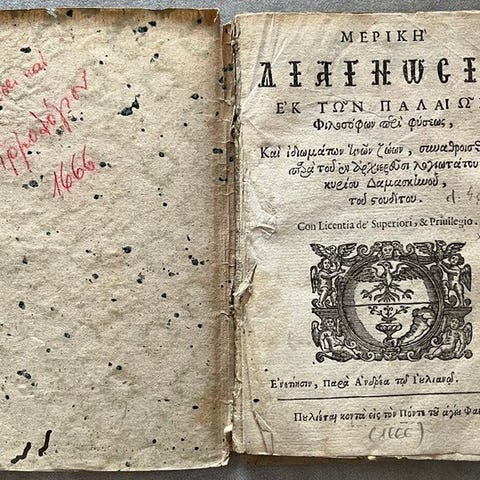 και
1666
ΜΕΡΙΚΗ
ΔΙΑΓΝΩΣΙ
ἘΚ ΤΩ͂Ν ΠΑΛΑΙΩ
Φιλοσόφων περὶ φύσεως,
Καὶ ἰδιωμάτων τινῶν ζώων, συναθροισθ
παρὰ τοῦ ἐν Ἀρχιερεῦσι λογιωτάτου
κυρίου Δαμασκίωοῦ,
τοῦ σουδίτου.
Con Licentia de' Superiori, & Priuilegio.
Ενετίησιν, Παρὰ Ἀνδρέᾳ τῷ Ἰουλιανῷ.
Πωλεῖται κοντὰ εἰς τὸν Πόντε τοῦ ἁγίου Φα
(1666)